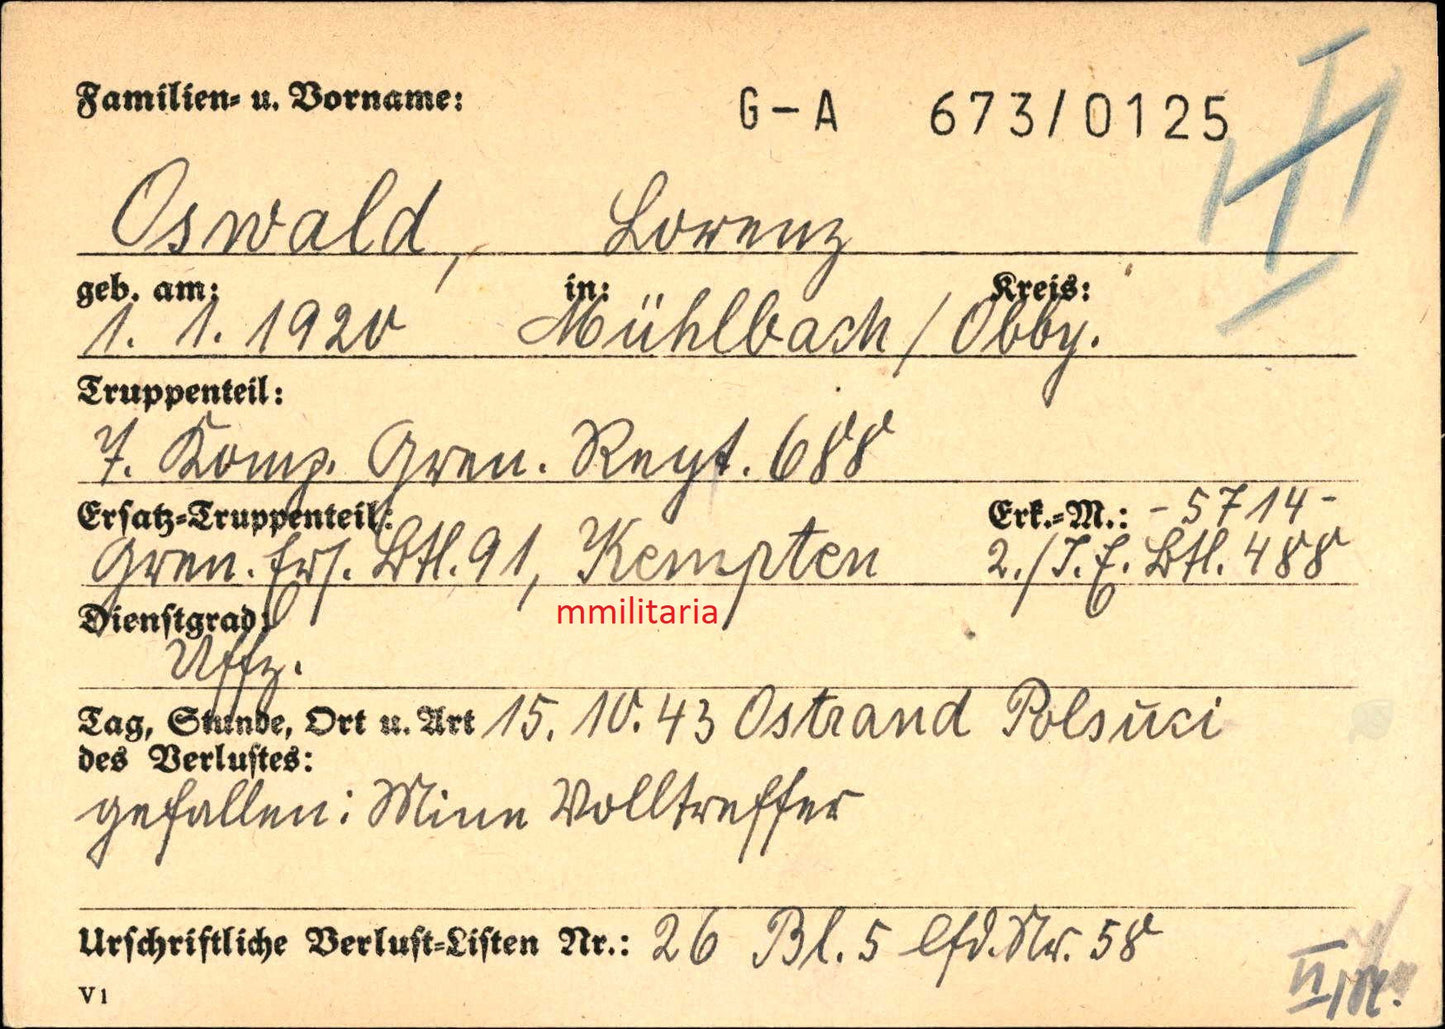 Familien- u. Vorname:
G-A 673/0125
Oswald, Lorenz
geb. am: in: Kreis:
1. 1. 1920 Mühlbach / Obby.
Truppenteil:
7. Komp. Gren. Regt. 688
Ersatz-Truppenteil: Erk.-M.: -5714-
Gren. Ers. Btl. 91, Kempten 2./I.E. Btl. 488
mmilitaria
Dienstgrad:
Uffz.
Tag, Stunde, Ort u. Art 15. 10. 43 Ostrand Polsuci
des Verlustes:
gefallen: Mine Volltreffer
Urschriftliche Verlust-Listen Nr.: 26 Bl. 5 lfd. Nr. 58
V1